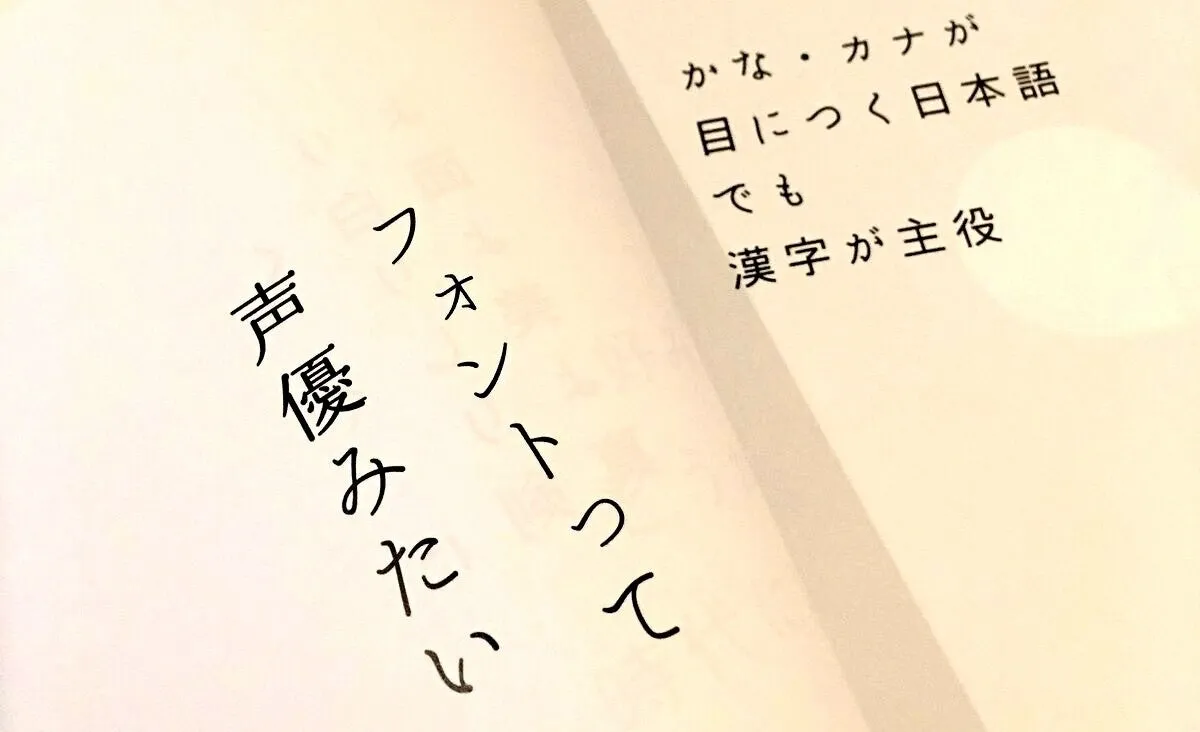 フォントって
声優みたい
かな・カナが
目につく日本語
でも
漢字が主役